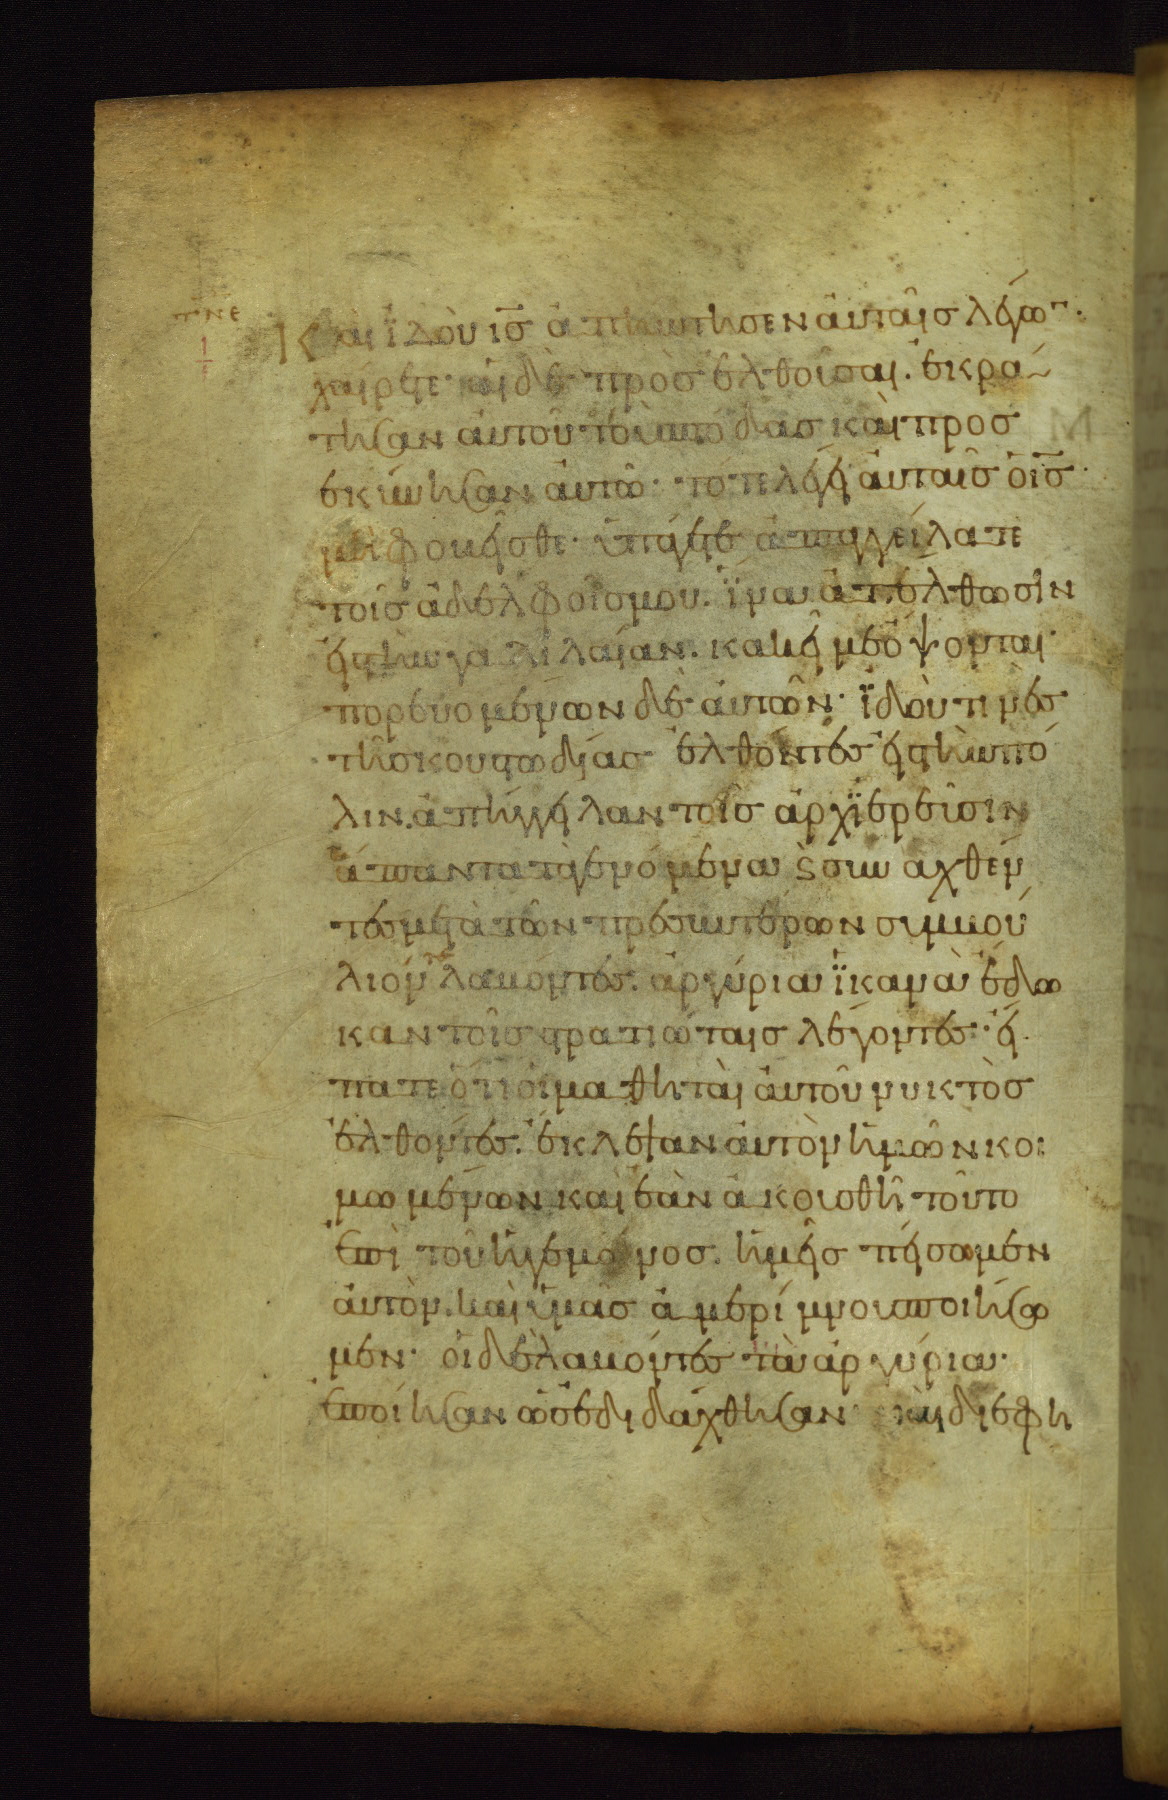 τνε
ι
Καὶ ἰδοὺ ις ἀπήντησεν αὐταῖσ λέγω(ν)·
χαίρετε· αἱ δὲ προσελθοῦσαι. ἐκρά
τησαν αὐτοῦ τοὺσ πόδασ καὶ προσ
εκύνησαν αὐτῶ· τότε λέγει αὐταῖσ ὁ ισ
μὴ φοβεῖσθε· ὑπάγετε ἀπαγγείλατε
τοῖσ ἀδελφοῖσ μου. ἵνα ἀπέλθωσιν
εἰσ τὴν γαλιλαίαν. κἀκεῖ με ὄψονται·
πορευομένων δὲ αὐτῶν· ἰδού τινεσ
τῆσ κουστωδίασ ἐλθόντεσ εἰσ τὴν πό
λιν. ἀπήγγειλαν τοῖσ ἀρχιερεῦσιν
ἅπαντα τὰ γενόμενα ϛ συναχθέν
τεσ μετὰ τῶν πρεσβυτέρων συμβού
λιόν τε λαβόντεσ. ἀργύρια ἱκανὰ ἔδω
καν τοῖσ στρατιώταισ λέγοντεσ· εἴ
πατε ὅτι οἱ μαθηταὶ αὐτοῦ νυκτὸσ
ἐλθόντεσ. ἔκλεψαν αὐτὸν ἡμῶν κοι
μωμένων καὶ ἐὰν ἀκουσθῆ τοῦτο
ἐπὶ τοῦ ἡγεμόνοσ. ἡμεῖσ πείσομεν
αὐτὸν. καὶ ὑμᾶσ ἀμερίμνουσ ποιήσο
μεν· οἱ δὲ λαβόντεσ τὰ ἀργύρια·
ἐποίησαν ὡσ ἐδιδάχθησαν· καὶ διεφη